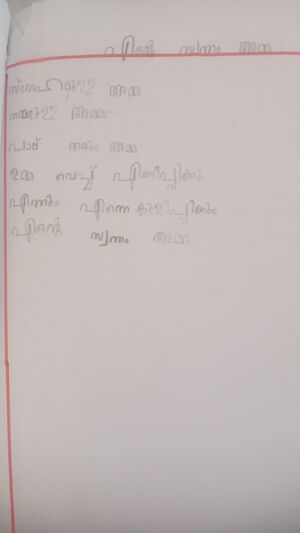 എന്റെ സ്വന്തം അമ്മ
സ്നേഹമുള്ള അമ്മ
നന്മയുള്ള അമ്മ
പാല് തരും അമ്മ
ഉമ്മ വെച്ച് എണീപ്പിക്കും
എന്നും എന്നെ കുളിപ്പിക്കും
എന്റെ സ്വന്തം അമ്മ